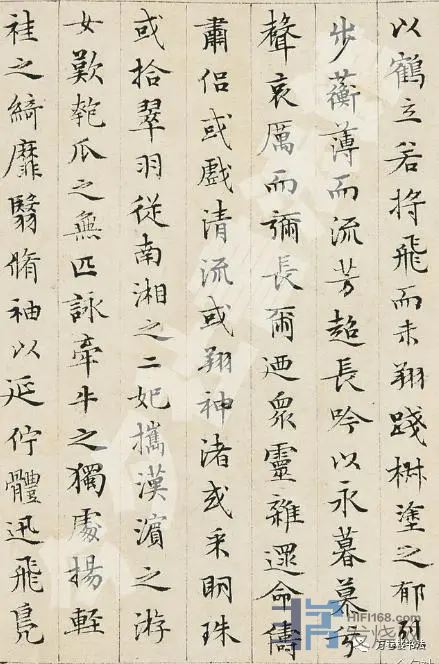 以鶴立若将飛而未翔踐椒塗之郁列
步蘅薄而流芳超長吟以永暮慕兮
聲哀厲而彌長爾迺衆靈雜遝命儔
肅侣或戲清流或翔神渚或采明珠
或拾翠羽從南湘之二妃攜漢濱之游
女歎匏瓜之無匹詠牽牛之獨處揚輕
袿之綺靡翳脩袖以延佇體迅飛鳧
HIFI168.com
发烧